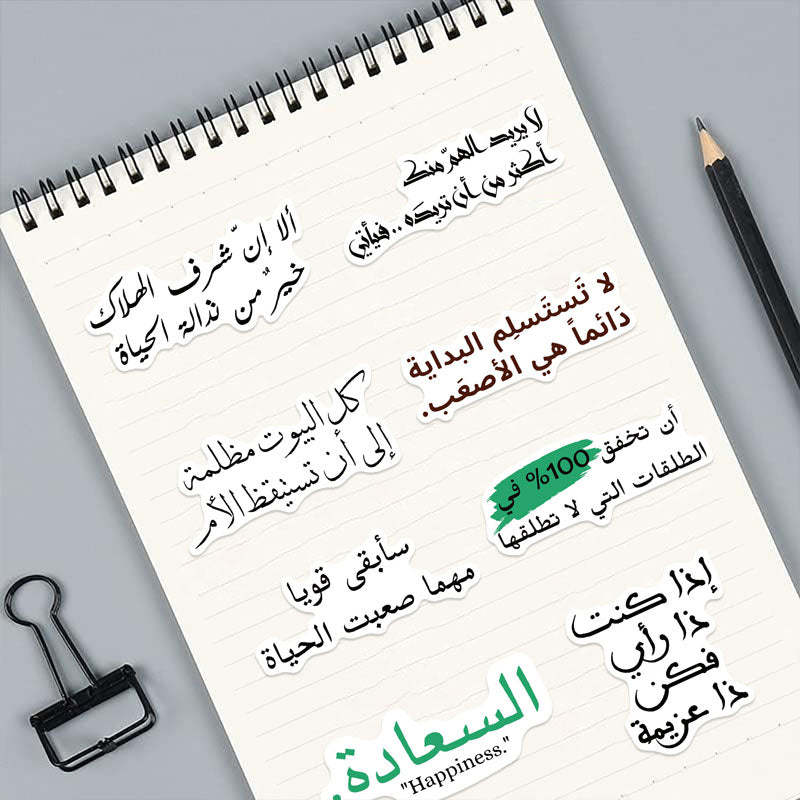 لا يريد الهمّ منك
أكثر من أن تريدَه .. فيأتي
ألا إنّ شرف الهلاك
خيرٌ من نذالة الحياة
لا تَستَسلِم البداية
دَائماً هي الأصعَب.
كل البيوت مظلمة
إلى أن تستيقظ الأم
أن تخفق 100% في
الطلقات التي لا تطلقها
سأبقى قويا
مهما صعبت الحياة
إذا كنت
ذا رأي
فكن
ذا عزيمة
السعادة.
"Happiness."